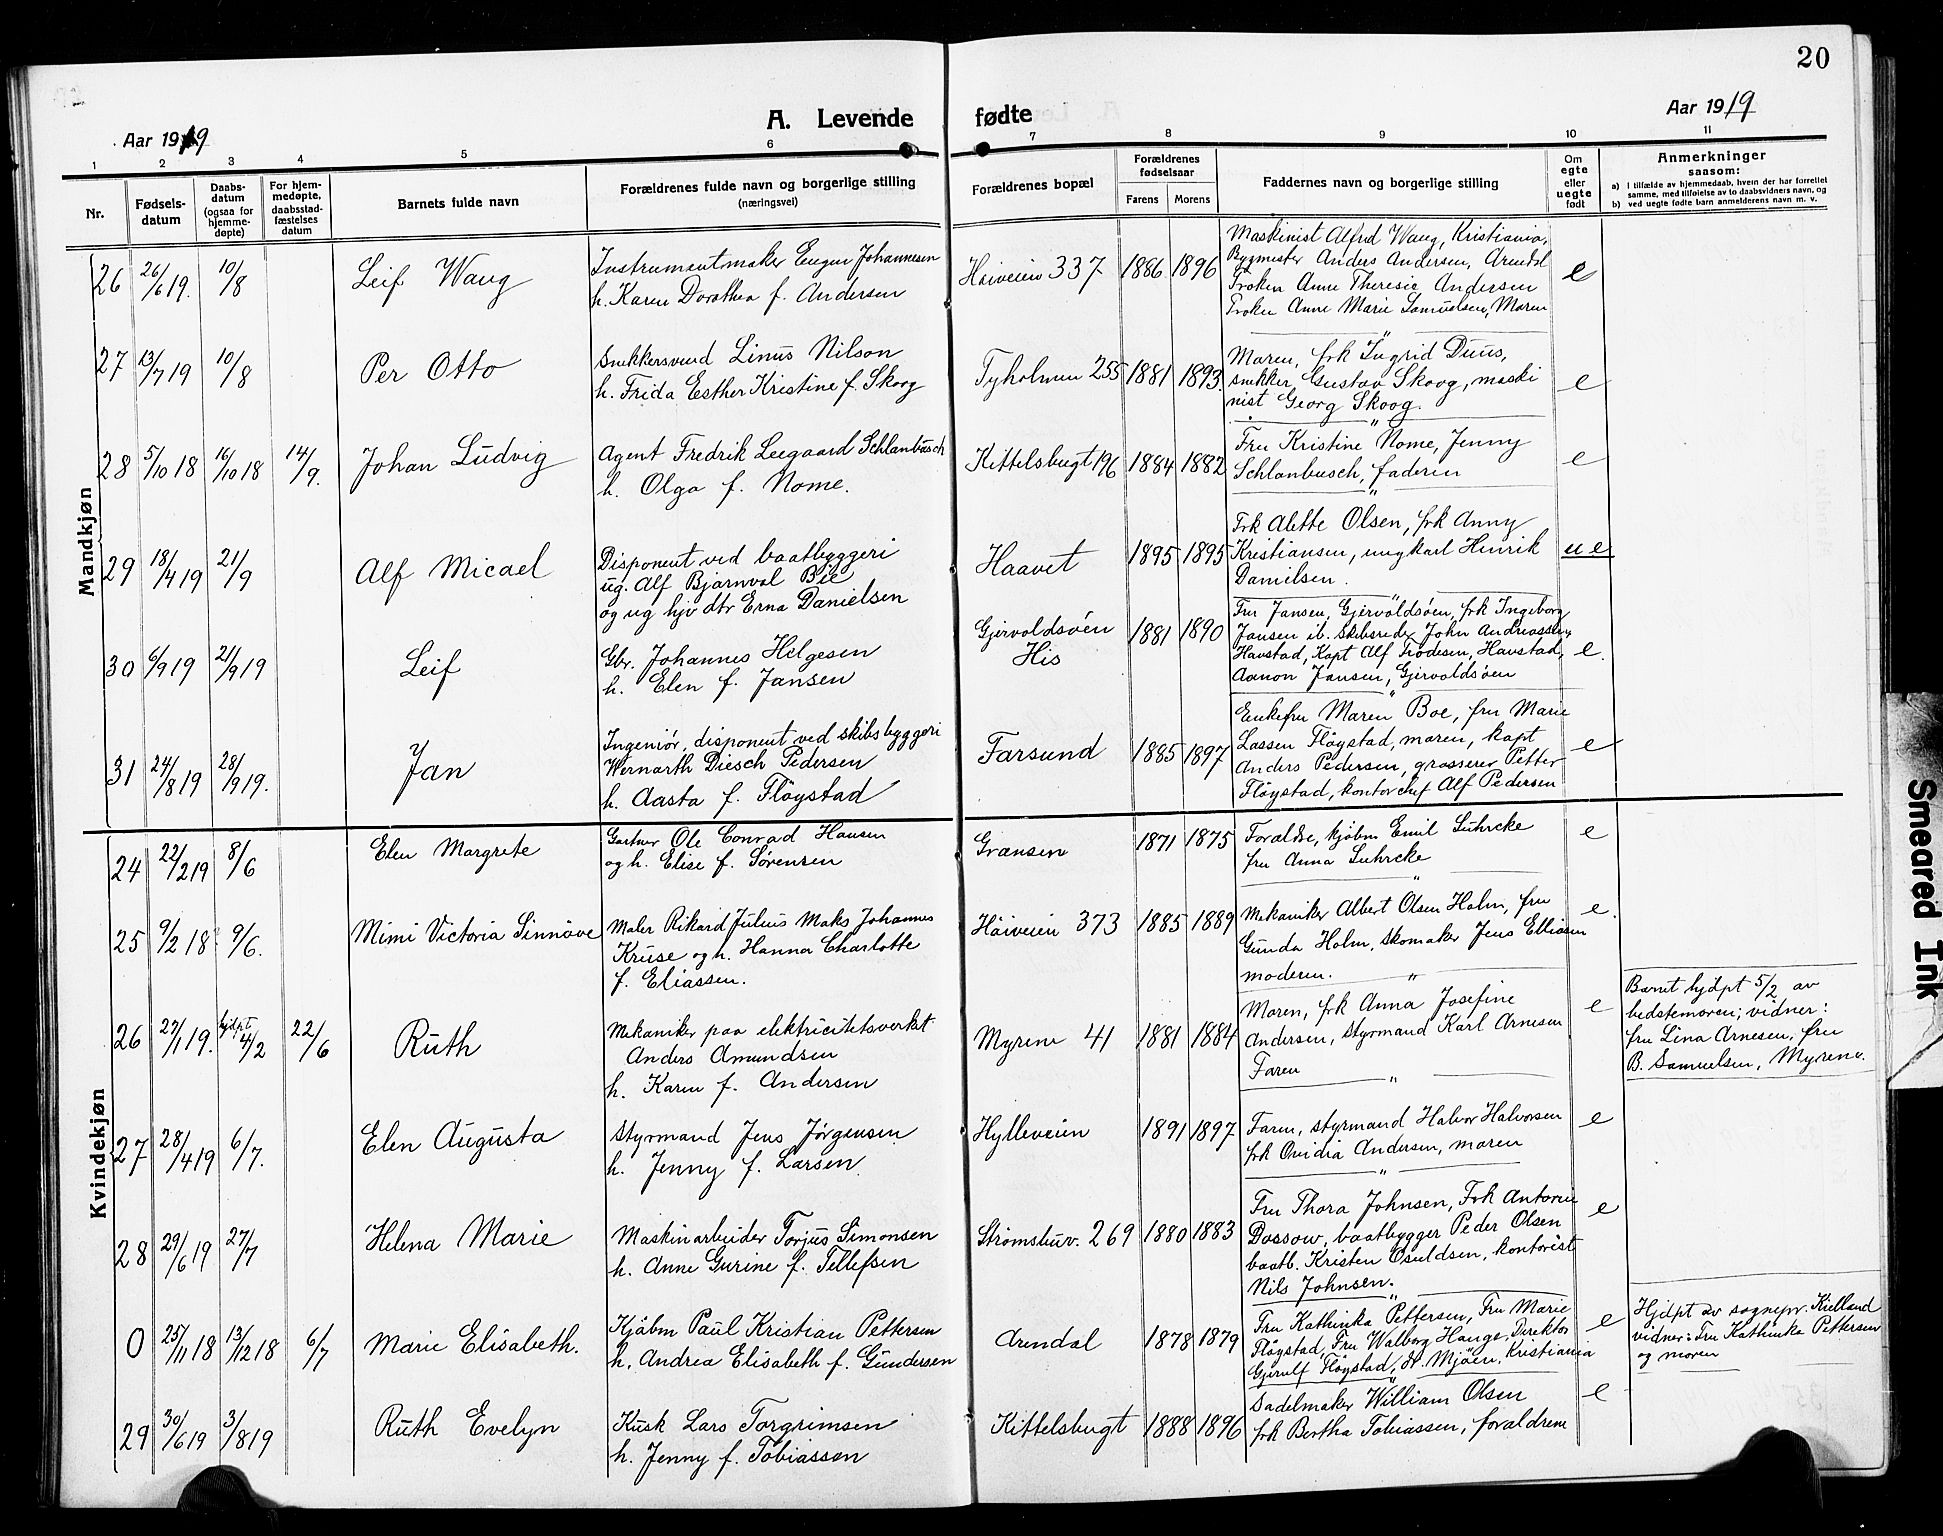 20
A. Levende fødte
Aar 1919
Aar 1919
1 2 3 4 5 6 7 8 9 10 11
Nr.
Fødsels-
datum
Daabs-
datum
(ogsaa for
hjemme-
døpte)
For hjem-
medøpte,
daabsstad-
fæstelses
datum
Barnets fulde navn
Forældrenes fulde navn og borgerlige stilling
(næringsvei)
Forældrenes bopæl
Forældrenes
fødselsaar
Farens Morens
Faddernes navn og borgerlig stilling
Om
egte
eller
uegte
født
Anmerkninger
saasom:
a) I tilfælde av hjemmedaab, hvem der har forrettet
samme, med tilføielse av to daabsvidners navn, og
b) ved uegte fødte barn anmelderens navn m. v.
Mandkjøn
26 26/6 19. 10/8 Leif Waug
Instrumentmaker Eugen Johannesen
h. Karen Dorothea f. Andersen
Høiveien 337 1886 1896
Maskinist Alfred Waug, Kristiania,
Bygmester Anders Andersen, Arendal
Frøken Anne Theresie Andersen
Frøken Anne Marie Samuelsen, Moren
e
27 13/7 19 10/8 Per Otto
Snekkersvend Linus Nilson
h. Frida Esther Kristine f. Skoog
Tyholmen 255 1881 1893.
Moren, frk Ingrid Duus,
snekker Gustav Skoog, maski
nist Georg Skoog.
e
28 5/10 18 16/10 18 14/9. Johan Ludvig
Agent Fredrik Leegaard Schlanbusch
h. Olga f. Nome.
Kittelsbugt 196 1884 1882
Fru Kristine Nome, Jenny
Schlanbusch, faderen
e
29 18/4 19 21/9 Alf Micael
Disponent ved baatbyggeri
ug. Alf Bjarnval Bie
og ug hjv dtr Erna Danielsen
Haavet 1895 1895
Frk Alette Olsen, frk Anny
Kristiansen, ungkarl Henrik
Danielsen.
u e
30 6/9 19 21/9 19 Leif
Gbr. Johannes Helgesen
h. Elen f. Jansen
Gjervoldsøen
His
1881 1890
Fru Jansen, Gjervoldsøen, frk Ingeborg
Jansen ib. skibsreder John Andreassen,
Havstad, Kapt Alf Trodesen, Havstad,
Aanon Jansen, Gjervoldsøen
e.
31 24/8 19 28/9 19. Jan
Ingeniør, disponent ved skibsbyggeri
Wernarth Diesch Pedersen
h. Aasta f. Fløystad
Farsund 1885 1897
Enkefru Maren Boe, fru Marie
Lassen Fløystad, moren, kapt
Anders Pedersen, grosserer Petter
Fløystad, kontorchef Alf Pedersen
e
Kvindekjøn
24 22/2 19 8/6 Elen Margrete
Gartner Ole Conrad Hansen
og h. Elise f. Sørensen
Grænsen 1871 1875
Forældre, kjøbm Emil Luhrcke
fru Anna Luhrcke
e
25 9/2 18 9/6. Mimi Victoria Sinnøve
Maler Rikard Julius Maks Johannes
Kruse og h. Hanna Charlotte
f. Eliassen.
Høiveien 373 1885 1889
Mekaniker Albert Olsen Holm, fru
Gunda Holm, skomaker Jens Elliasen
moderen.
e.
26 27/1 19. hjdpt 4/2 22/6 Ruth
Mekaniker paa elektricitetsverket
Anders Amundsen
h. Karen f. Andersen
Myrene 41 1881 1884
Moren, frk Anna Josefine
Andersen, styrmand Karl Arnesen
Faren
e
Barnet hjdpt 5/2 av
bedstemoren; vidner:
fru Lina Arnesen, fru
B. Samuelsen, Myrene.
27 28/4 19 6/7. Elen Augusta
Styrmand Jens Jørgensen
h. Jenny f. Larsen
Hylleveien 1891 1897
Faren, styrmand Halvor Halvorsen
frk Ovidia Andersen, moren
e
28 29/6 19 27/7 Helena Marie
Maskinarbeider Torjus Simonsen
h. Anne Gurine f. Tellefsen
Strømsbuv. 269 1880 1883
Fru Thora Johnsen, Frk Antonie
Dossow, baatbygger Peder Olsen
baatb. Kristen Osuldsen, kontorist
Nils Johnsen.
e
0 25/11 18 13/12 18 6/7 Marie Elisabeth.
Kjøbm Paul Kristian Pettersen
h. Andrea Elisabeth f. Gundersen
Arendal 1878 1879
Fru Kathinka Pettersen, Fru Marie
Fløystad, Fru Walborg Hauge, Direktør
Gjerulf Fløystad, H. Mjøen, Kristiania
e
Hjdpt av sognepr. Kielland
vidner: Fru Kathinka Pettersen
og moren
29 30/6 19 3/8 19 Ruth Evelyn
Kusk Lars Torgrimsen
h. Jenny f. Tobiassen
Kittelsbugt 1888 1896
Sadelmaker William Olsen
frk Bertha Tobiassen, forældrene
e
Smeared Ink